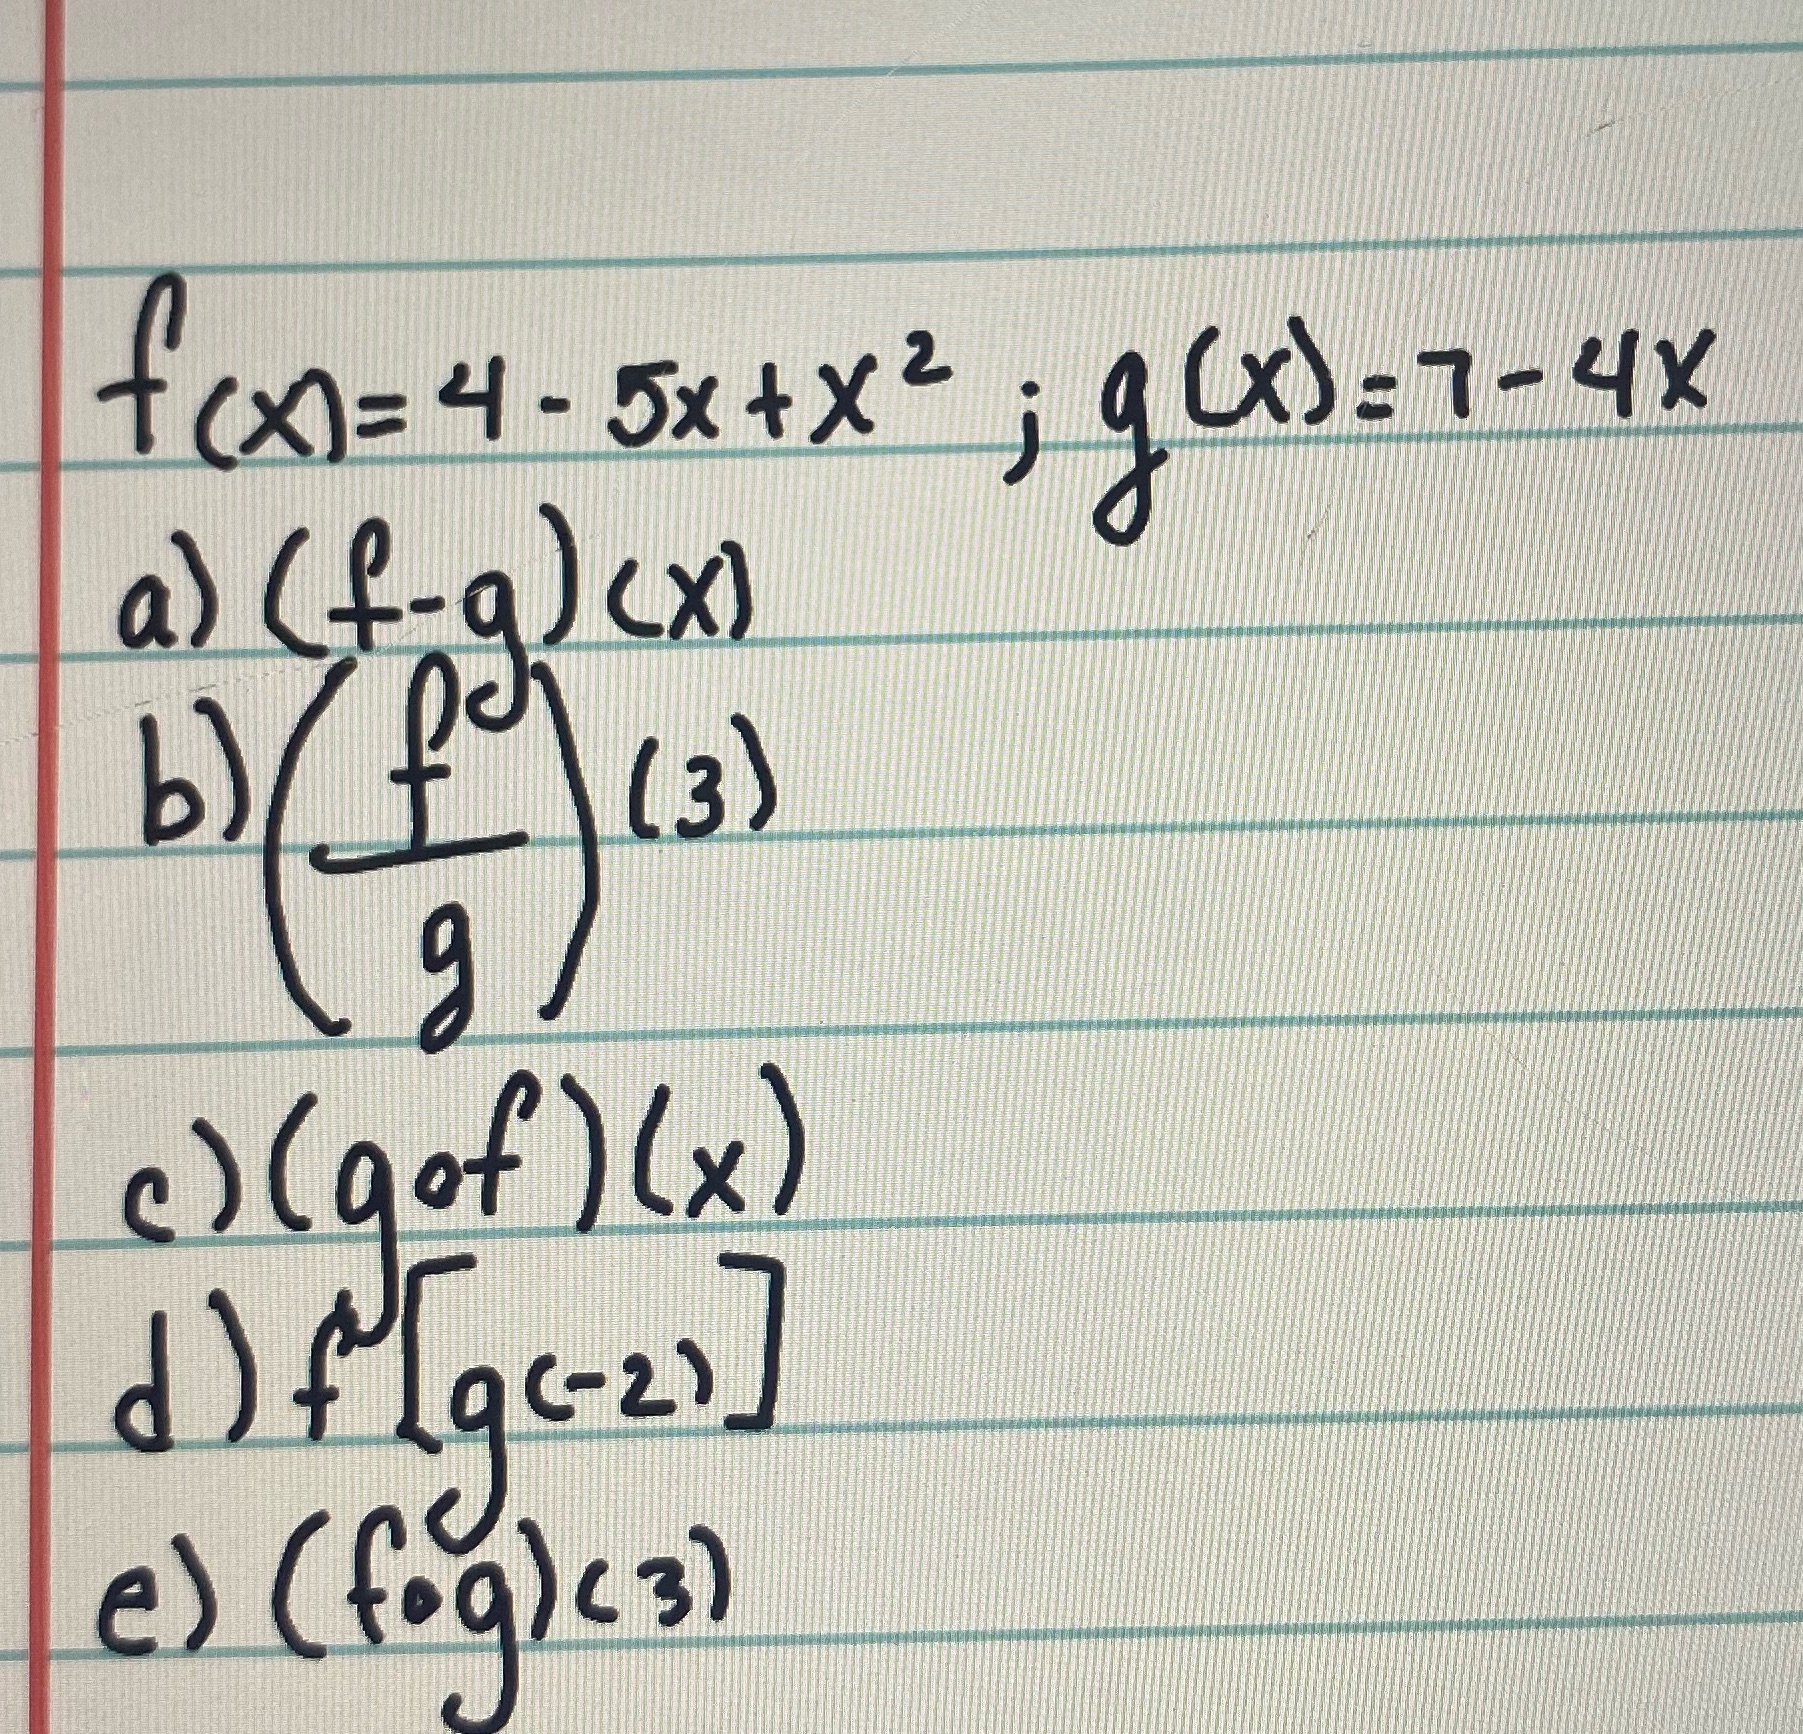 f(x) = 4 - 5x + x² ; g(x) = 7 - 4x
a) (f-g)(x)
b) (f/g)(3)
c) (gof)(x)
d) f[g(-2)]
e) (fog)(3)